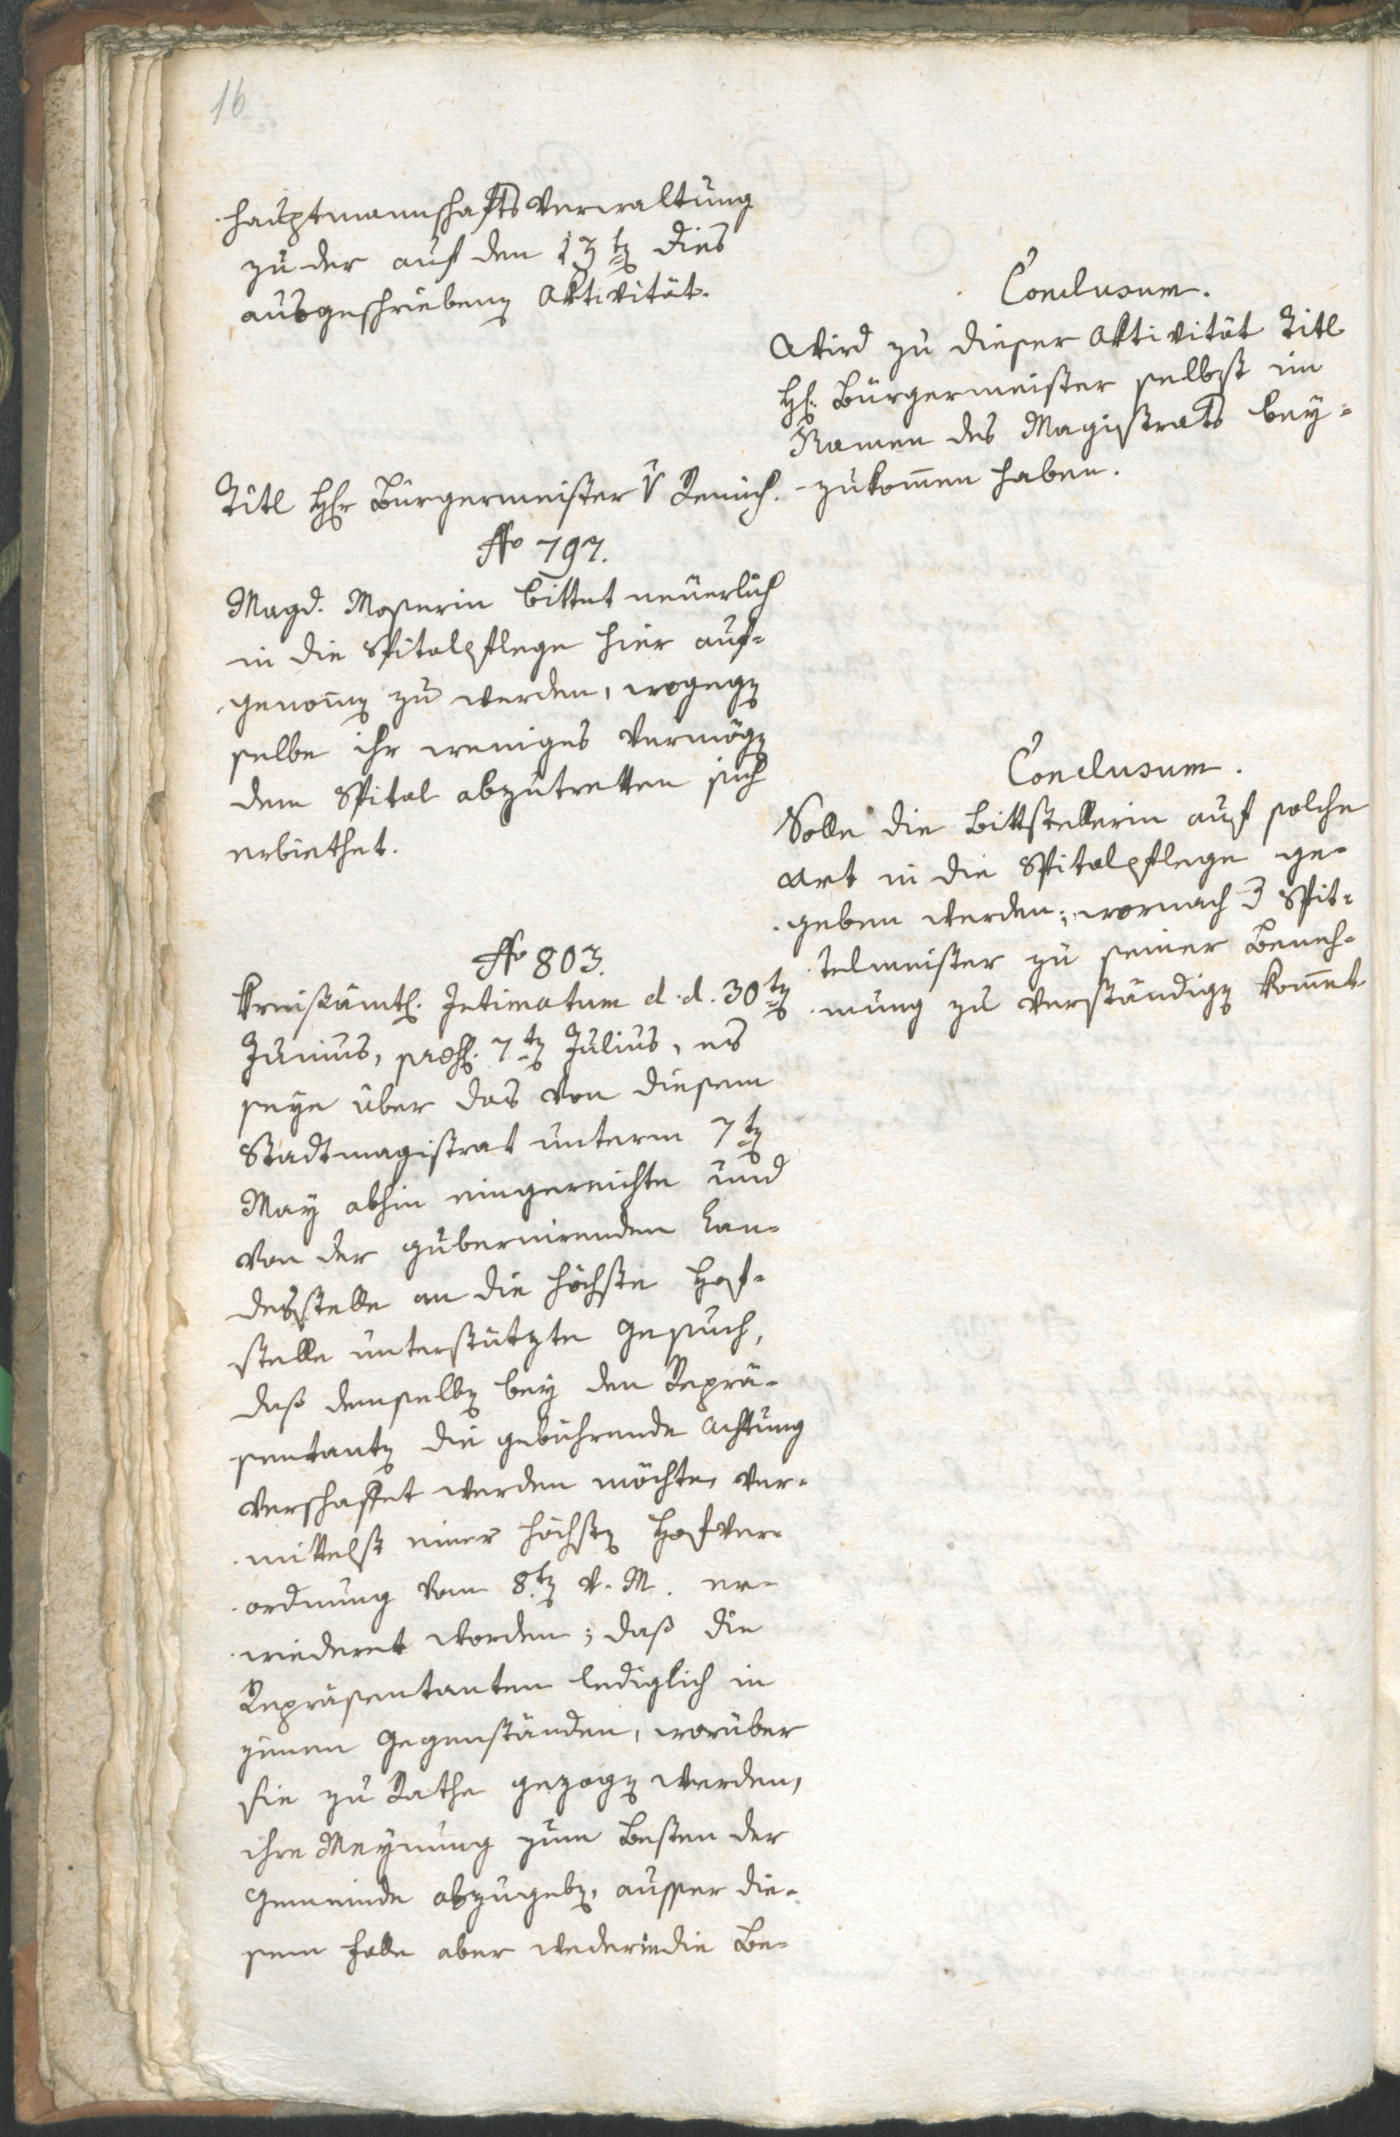 16
hauptmannschafts Verwaltung
zu der auf den 13t dies
ausgeschriebenen Aktivität.
Conclusum.
Wird zu dieser Aktivität Titl
H: Bürgermeister selbst im
Namen des Magistrats bey-
zukomen haben.
Titl Hr Bürgermeister v
No 797.
Magd. Moserin bittet neuerlich
in die Spitalpflege hier auf-
genomen zu werden, wogegen
selbe ihr weniges Vermögen
dem Spital abzutretten sich
erbiethet.
Conclusum.
Solle die Bittstellerin auf solche
Art in die Spitalpflege ge-
geben werden; wornach Spit-
telmeister zu seiner Beneh-
mung zu verständigen kommet
No 803.
Kreisämtl. Intimatum d. d. 30t
Junius, 7t Julius, es
seye über das von diesem
Stadtmagistrat unterm 7t
May abhin eingereichte und
von der gubernirenden Lan-
desstelle an die höchste Hof-
stelle unterstützte Gesuch,
daß demselben bey den Reprä-
sentanten die gebührende Achtung
verschaffet werden möchte, ver-
mittelst einer höchsten Hofver-
ordnung vom 8t v. M. er-
wiedert worden; daß die
Repräsentanten lediglich in
jenen Gegenständen, worüber
sie zu Rathe gezogen werden,
ihre Meynung zum Besten der
Gemeinde abzugeben, ausser die-
sem Falle aber weder in die Be-